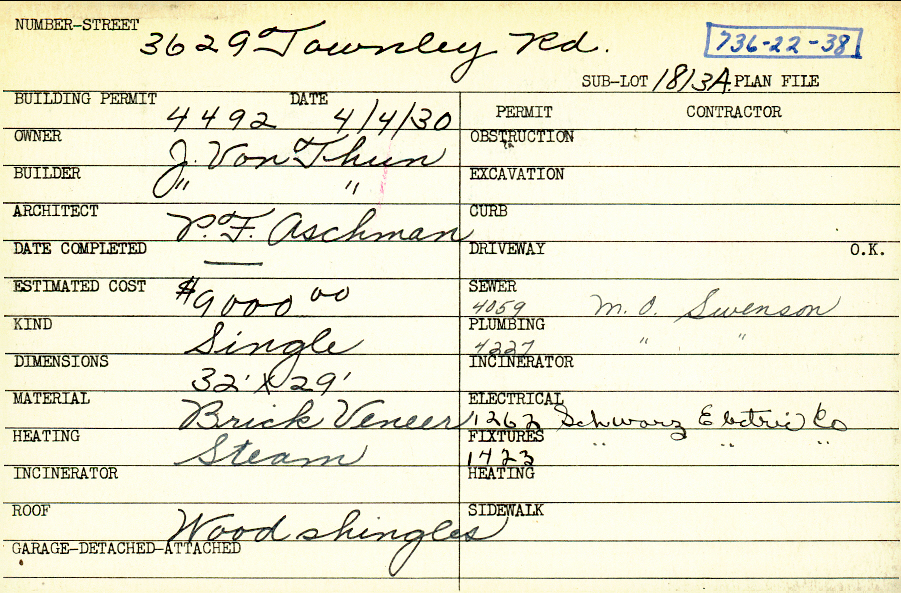 NUMBER-STREET 3629 Townley Rd. 736-22-38
SUB-LOT 1813A. PLAN FILE
BUILDING PERMIT 4492 DATE 4/4/30
OWNER J. Von Thun
BUILDER " "
ARCHITECT P. F. Aschman
DATE COMPLETED —
ESTIMATED COST $9000 00
KIND Single
DIMENSIONS 32' X 29'
MATERIAL Brick Veneer
HEATING Steam
INCINERATOR
ROOF Wood shingles
GARAGE-DETACHED-ATTACHED
PERMIT CONTRACTOR
OBSTRUCTION
EXCAVATION
CURB
DRIVEWAY O.K.
SEWER 4059 M. O. Swenson
PLUMBING 4227 " "
INCINERATOR
ELECTRICAL 1262 Schwarz Electric Co
FIXTURES 1423 " " "
HEATING
SIDEWALK